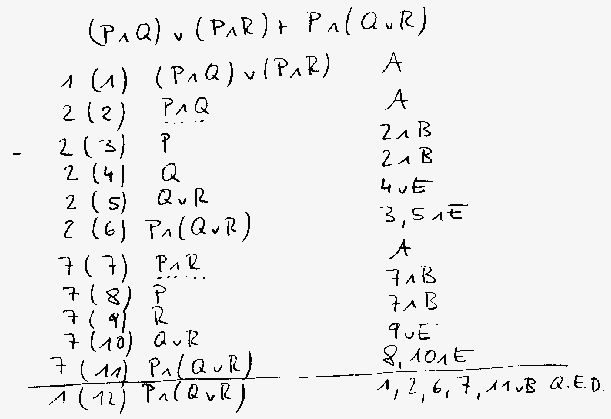 (P∧Q) ∨ (P∧R) ⊢ P∧(Q∨R)
1 (1) (P∧Q)∨(P∧R) A
2 (2) P∧Q A
2 (3) P 2∧B
2 (4) Q 2∧B
2 (5) Q∨R 4∨E
2 (6) P∧(Q∨R) 3,5∧E
7 (7) P∧R A
7 (8) P 7∧B
7 (9) R 7∧B
7 (10) Q∨R 9∨E
7 (11) P∧(Q∨R) 8,10∧E
1 (12) P∧(Q∨R) 1,2,6,7,11∨B Q.E.D.